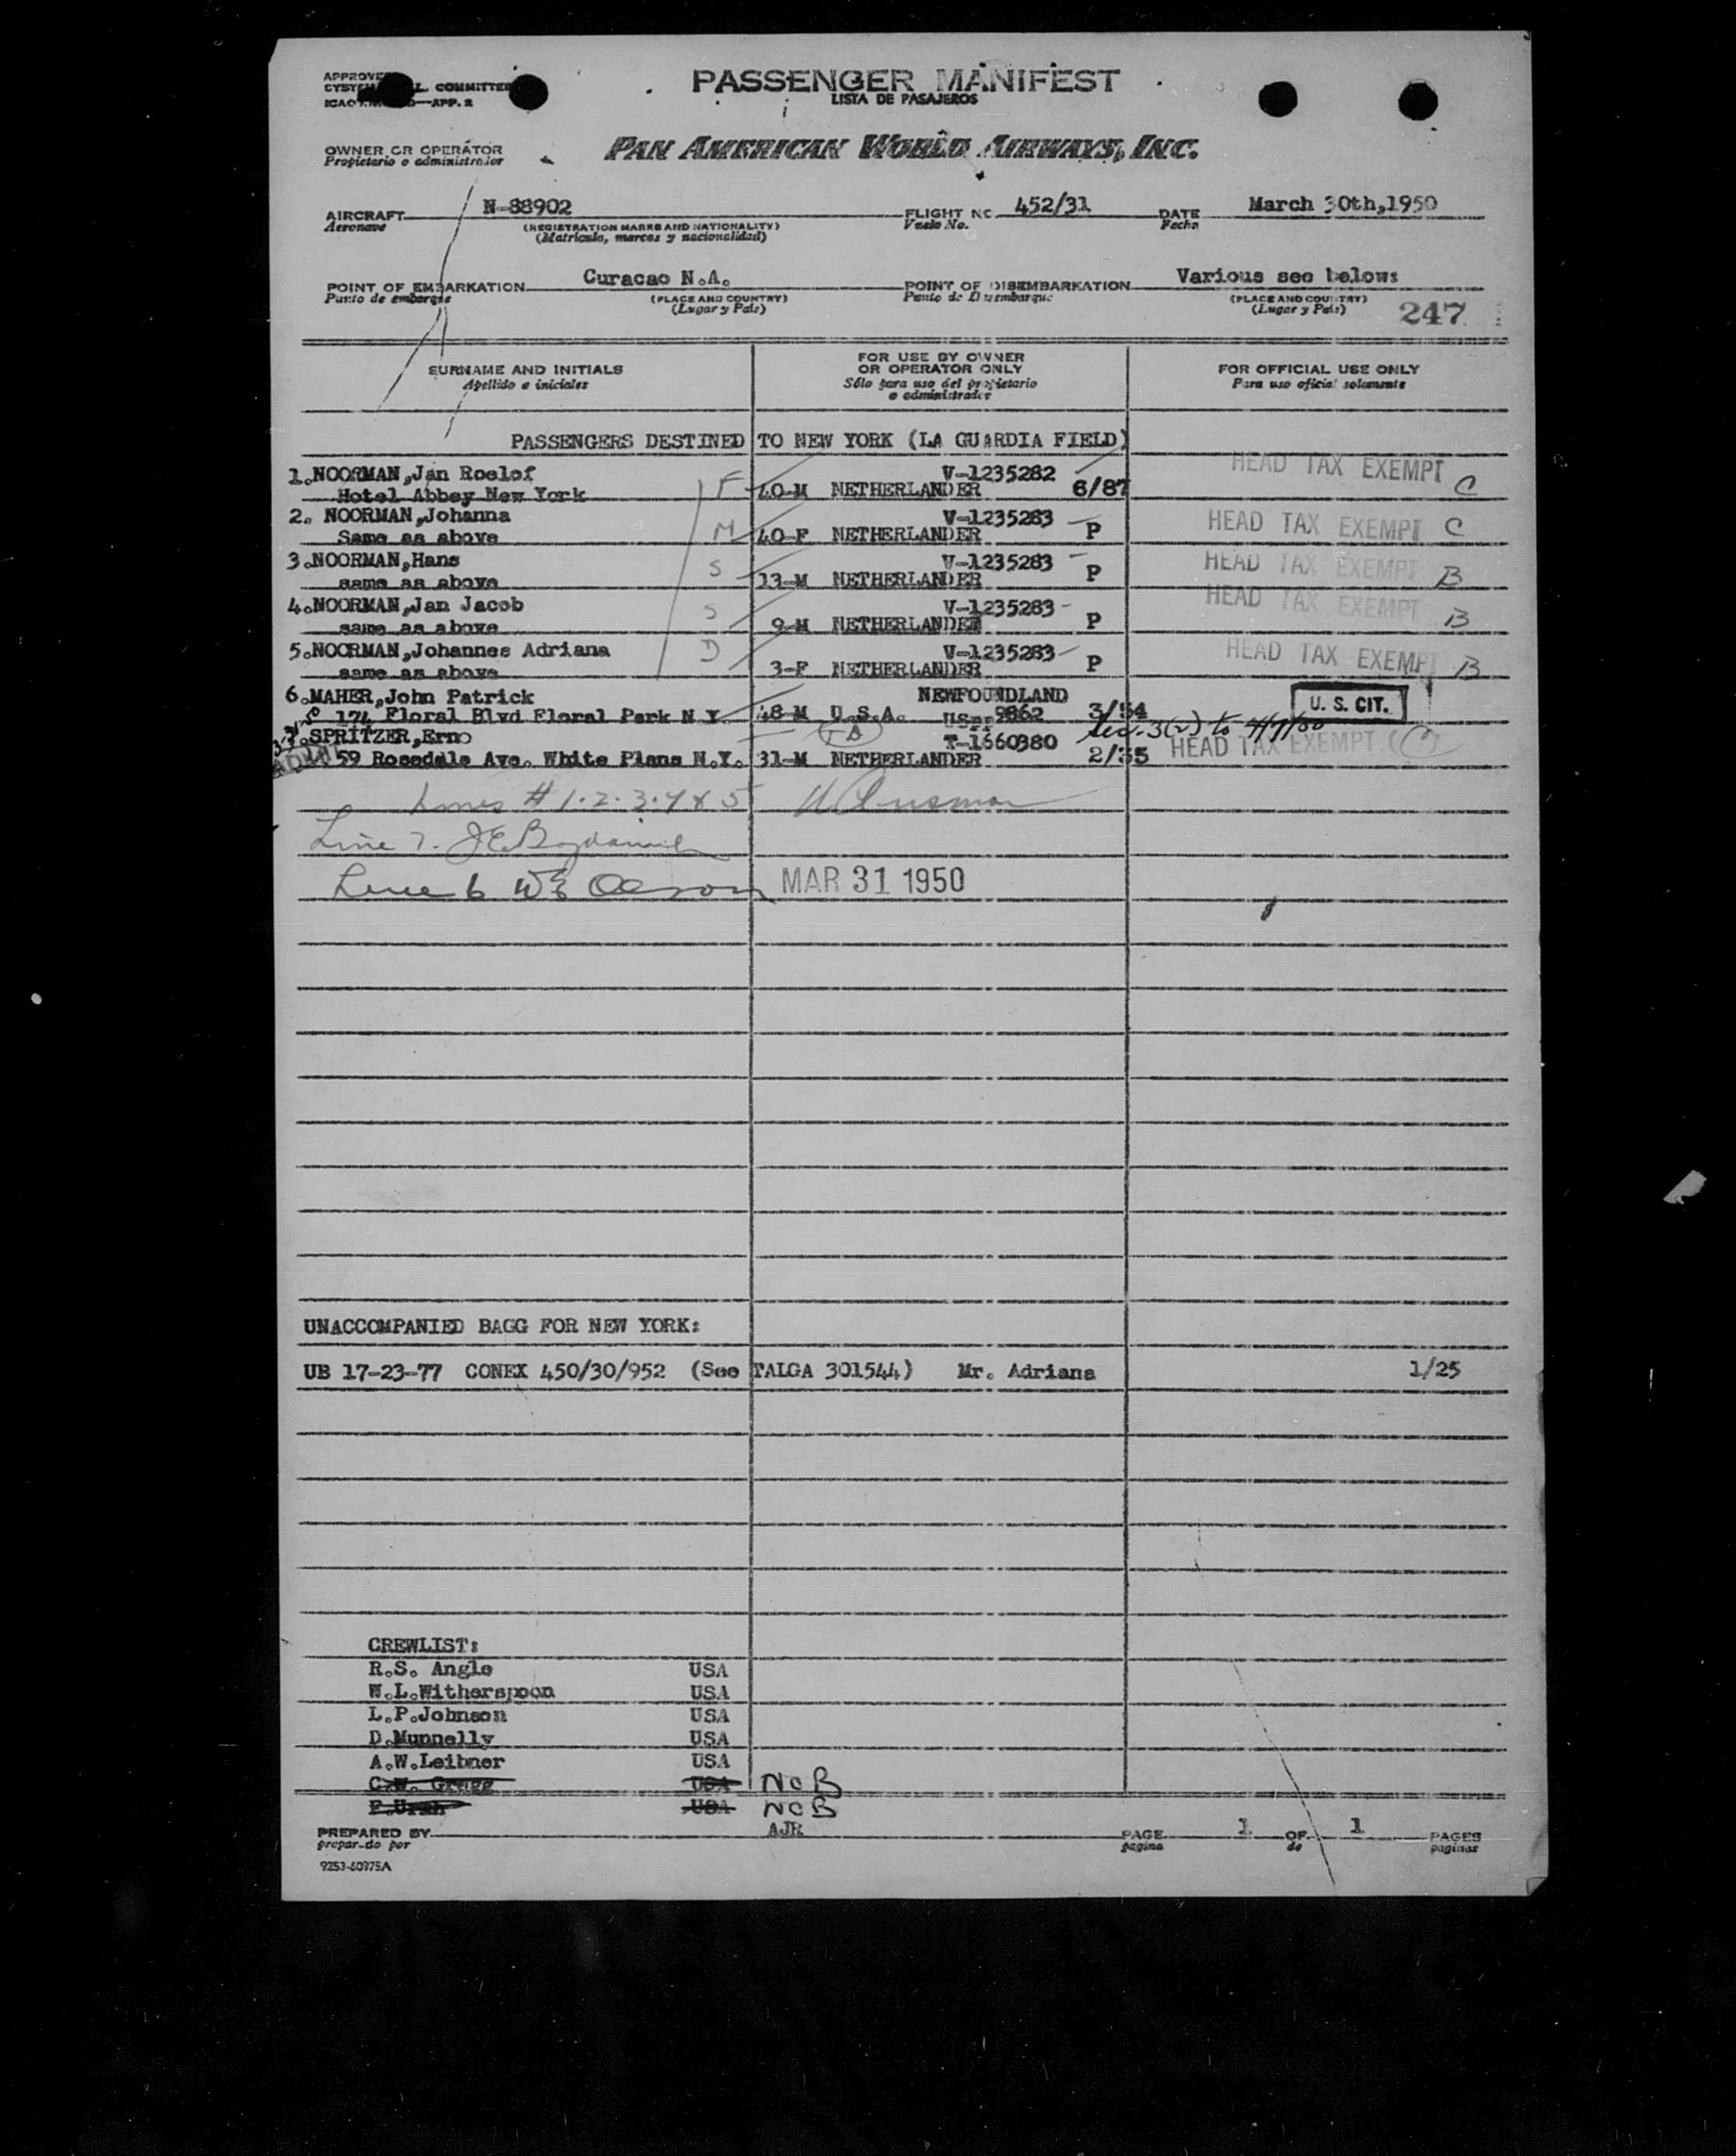 PASSENGER MANIFEST
LISTA DE PASAJEROS
APPROVE
COMMITTEE
ICAO —APP. 2
OWNER OR OPERATOR
Propietario o administrador
PAN AMERICAN WORLD AIRWAYS, INC.
AIRCRAFT N-88902 FLIGHT NO 452/31 DATE March 30th,1950
Aeronave (REGISTRATION MARKS AND NATIONALITY) Vuelo No. Fecha
(Matricula, marcas y nacionalidad)
POINT OF EMBARKATION Curacao N.A. POINT OF DISEMBARKATION Various see below:
Punto de embarque (PLACE AND COUNTRY) Punto de Disembarque (PLACE AND COUNTRY)
(Lugar y Pais) (Lugar y Pais) 247
SURNAME AND INITIALS FOR USE BY OWNER OR OPERATOR ONLY FOR OFFICIAL USE ONLY
Apellido e iniciales Sólo para uso del propietario o administrador Para uso oficial solamente
PASSENGERS DESTINED TO NEW YORK (LA GUARDIA FIELD)
1.NOORMAN,Jan Roelof V-1235282 HEAD TAX EXEMPT C
Hotel Abbey New York F 40-M NETHERLANDER 6/87
2. NOORMAN,Johanna V-1235283 HEAD TAX EXEMPT C
Same as above M 40-F NETHERLANDER P
3.NOORMAN,Hans V-1235283 HEAD TAX EXEMPT B
same as above S 13-M NETHERLANDER P
4.NOORMAN,Jan Jacob V-1235283 HEAD TAX EXEMPT B
same as above S 9-M NETHERLANDER P
5.NOORMAN,Johannes Adriana V-1235283 HEAD TAX EXEMPT B
same as above D 3-F NETHERLANDER P
6.MAHER,John Patrick NEWFOUNDLAND U. S. CIT.
174 Floral Blvd Floral Park N.Y. 48-M U.S.A. 9862 3/54
SPRITZER,Erno T-1660380 Sec. 3(2) to HEAD TAX EXEMPT
59 Rosedale Ave. White Plans N.Y. 31-M NETHERLANDER 2/35
Lines # 1.2.3.4 & 5
Line 7.
Line 6 MAR 31 1950
UNACCOMPANIED BAGG FOR NEW YORK:
UB 17-23-77 CONEX 450/30/952 (See TALGA 301544) Mr. Adriana 1/25
CREWLIST:
R.S. Angle USA
W.L.Witherspoon USA
L.P.Johnson USA
D.Munnelly USA
A.W.Leibner USA
C.W. Gragg USA NOB
USA NOB
PREPARED BY AJR PAGE 1 OF 1 PAGES
preparado por pagina de paginas
9253-60975A